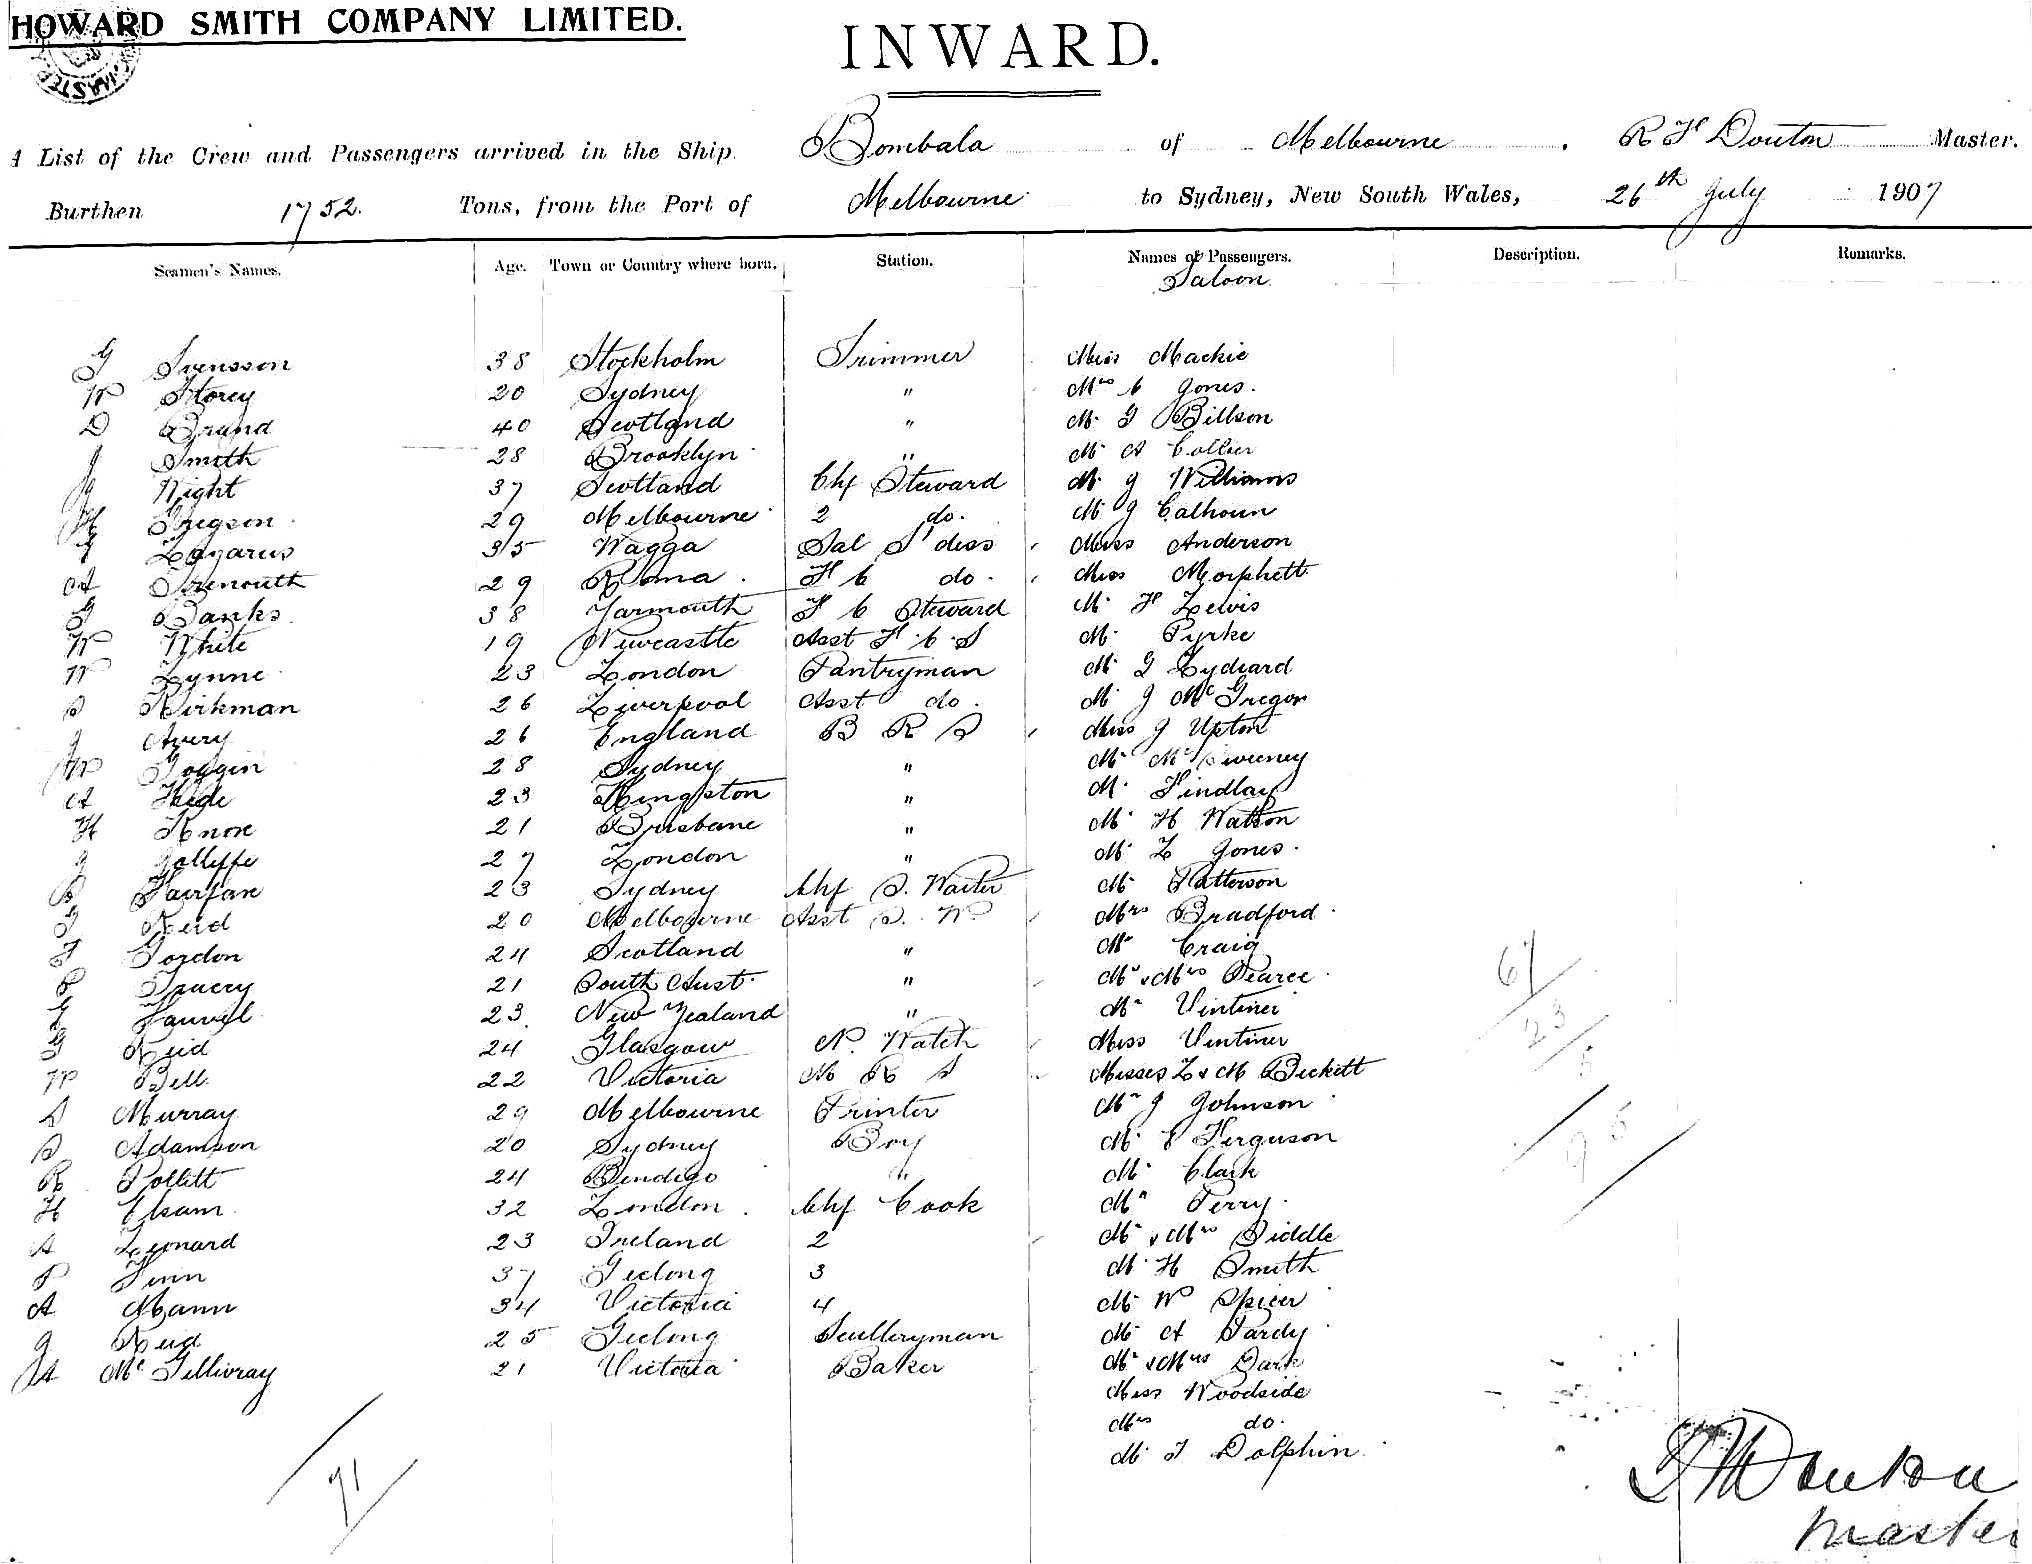 HOWARD SMITH COMPANY LIMITED.
INWARD.
A List of the Crew and Passengers arrived in the Ship Bombala of Melbourne. R H Douton Master.
Burthen 1752. Tons, from the Port of Melbourne to Sydney, New South Wales, 26th July 1907
Seamen's Names. Age. Town or Country where born. Station. Names of Passengers. Description. Remarks.
Saloon.
G Svensson 38 Stockholm Trimmer Miss Mackie
W Storey 20 Sydney " Mrs C Jones.
D Brand 40 Scotland " Mr G Billson
J Smith 28 Brooklyn " Mr A Collier
J Wight 37 Scotland Chf Steward Mr J Williams
H Gregson 29 Melbourne 2 do. Mr J Calhoun
Lazarus 35 Wagga Sal S'dess Miss Anderson
A Trenouth 29 Roma. F C do. Miss Morphett
G Banks 38 Yarmouth F C Steward Mr H Lewis
W White 19 Newcastle Asst F.C.S Mr Pyrke
W Lynne 23 London Pantryman Mr G Lydiard
S Kirkman 26 Liverpool Asst do. Mr J McGregor
J Avery 26 England B R S Miss J Upton
W Goggin 28 Sydney " Mr McSweeney
A Hide 23 Kingston " Mr Findlay
H Knox 21 Brisbane " Mr H Watson
J Jolliffe 27 London " Mr L Jones.
S Fairfax 23 Sydney Chf S. Waiter Mr Patterson
G Reid 20 Melbourne Asst S. W Mrs Bradford.
F Gordon 24 Scotland " Mr Craig
P Tracey 21 South Aust. " Mr & Mrs Pearce.
Fauvel 23 New Zealand " Mr Vintiner
G Reid 24 Glasgow N. Watch Miss Vintiner
W Bell 22 Victoria N R S Misses L & M Beckett
S Murray 29 Melbourne Printer Mr J Johnson
S Adamson 20 Sydney Boy Mr Ferguson
R Pollitt 24 Bendigo " Mr Clark
H Elsam 32 London. Chf Cook Mr Perry.
A Leonard 23 Ireland 2 Mr & Mrs Siddle
P Finn 37 Geelong 3 Mr H Smith
A Mann 34 Victoria 4 Mr W Spicer
J Reid 25 Geelong Sculleryman Mr A Pardy
A McGillivray 21 Victoria Baker Mr & Mrs Dark
Miss Woodside
Mrs do.
Mr F Dolphin
67
23
5
95
71
Douton
Master